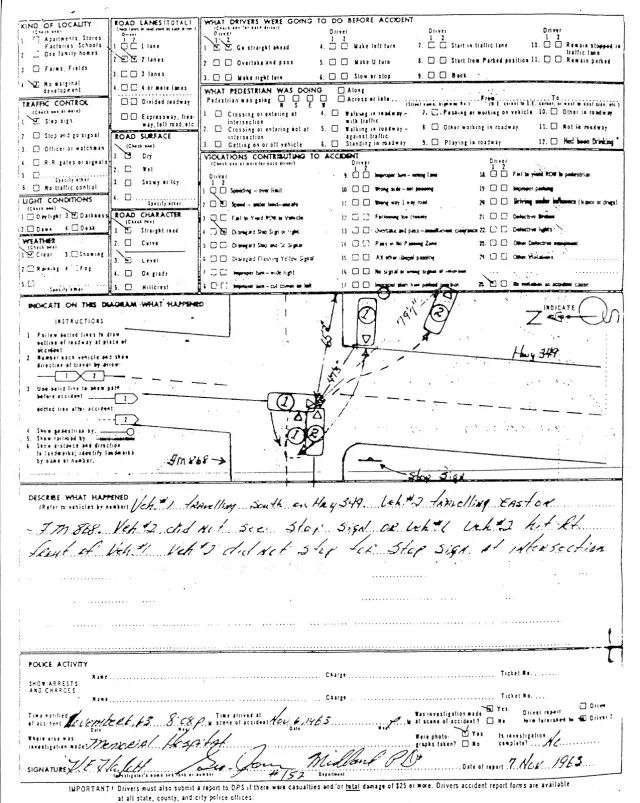 KIND OF LOCALITY
(Check one)
1 Apartments, Stores
Factories, Schools
2 One family homes
3 Farms, Fields
4 No marginal
development
TRAFFIC CONTROL
1 Stop sign
2 Stop and go signal
3 Officer or watchman
4 R.R. gates or signals
5
Specify other
6 No traffic control
LIGHT CONDITIONS
(Check one)
1 Daylight 3 Darkness
2 Dawn 4 Dusk
WEATHER
(Check one)
1 Clear 3 Snowing
2 Raining 4 Fog
5
Specify other
ROAD LANES (TOTAL)
Driver
1 2
1 1 lane
2 2 lanes
3 3 lanes
4 4 or more lanes
Divided roadway
Expressway, free-
way, toll road, etc
ROAD SURFACE
(Check one)
1 Dry
2 Wet
3 Snowy or icy
4
Specify other
ROAD CHARACTER
(Check one)
1 Straight road
2 Curve
1 Level
2 On grade
3 Hillcrest
WHAT DRIVERS WERE GOING TO DO BEFORE ACCIDENT
(Check one for each driver)
Driver
1 2
1. Go straight ahead
2. Overtake and pass
3. Make right turn
Driver
1 2
4. Make left turn
5. Make U turn
6. Slow or stop
Driver
1 2
7. Start in traffic lane
8. Start from Parked position
9. Back
Driver
1 2
10. Remain stopped in
traffic lane
11. Remain parked
WHAT PEDESTRIAN WAS DOING
Pedestrian was going
N S E W
Along
Across or into
From To
1 Crossing or entering at
intersection
2 Crossing or entering not at
intersection
3 Getting on or off vehicle
4. Walking in roadway -
with traffic
5. Walking in roadway -
against traffic
6. Standing in roadway
7. Pushing or working on vehicle
8 Other working in roadway
9. Playing in roadway
10. Other in roadway
11. Not in roadway
12. Had been Drinking
VIOLATIONS CONTRIBUTING TO ACCIDENT
Driver
1 2
1 Speeding - over limit
2 Speed - under limit - unsafe
3 Fail to Yield ROW to Vehicle
4 Disregard Stop Sign or light
5 Disregard Stop and Go Signal
6 Disregard Flashing Yellow Signal
7 Improper turn - wide right
8 Improper turn - cut corner on left
Driver
1 2
9 Improper turn - wrong lane
10 Wrong side - not passing
11 Wrong way 1 way road
12 Following too closely
13
14 Pass in No Passing Zone
15 All other illegal passing
16 No signal or wrong signal of intention
17
Driver
1 2
18 Fail to yield ROW to pedestrian
19 Improper parking
20 Driving under influence (liquor or drugs)
21 Defective Brakes
22 Defective lights
23 Other Defective equipment
24 Other Violations
25 No violation as accident cause
INDICATE ON THIS DIAGRAM WHAT HAPPENED
INSTRUCTIONS
1 Follow dotted lines to draw
outline of roadway at place of
accident
2 Number each vehicle and show
direction of travel by arrow
1 2
3 Use solid line to show path
before accident
2
dotted line after accident
2
4 Show pedestrian by
5 Show railroad by
6 Show distance and direction
to landmarks; identify landmarks
by name or number.
1
2
1
1
2
INDICATE
N
Hwy 349
FM 868
Stop Sign
DESCRIBE WHAT HAPPENED
(Refer to vehicles by number) Veh. #1 travelling South on Hwy 349. Veh. #2 travelling East on
FM 868. Veh #2 did not see Stop Sign or Veh #1 Veh #2 hit Rt
front of Veh #1 Veh #2 did not stop for Stop Sign at intersection
POLICE ACTIVITY
SHOW ARRESTS
AND CHARGES
Name Charge Ticket No.
Name Charge Ticket No.
Time notified
of accident November 6, 63 8:08 P. M
Time arrived at
scene of accident Nov 6, 1963 P. M
Was investigation made
at scene of accident?
Yes
No
Driver report
form furnished to
Driver
Driver 2
Where else was
investigation made Memorial Hospital
Were photo-
graphs taken?
Yes
No
Is investigation
complete? No
SIGNATURE #152 Midland P.D.
Investigator's name and rank or number Department
Date of report 7 Nov. 1963
IMPORTANT! Drivers must also submit a report to DPS if there were casualties and/or total damage of $25 or more. Drivers accident report forms are available
at all state, county, and city police offices.